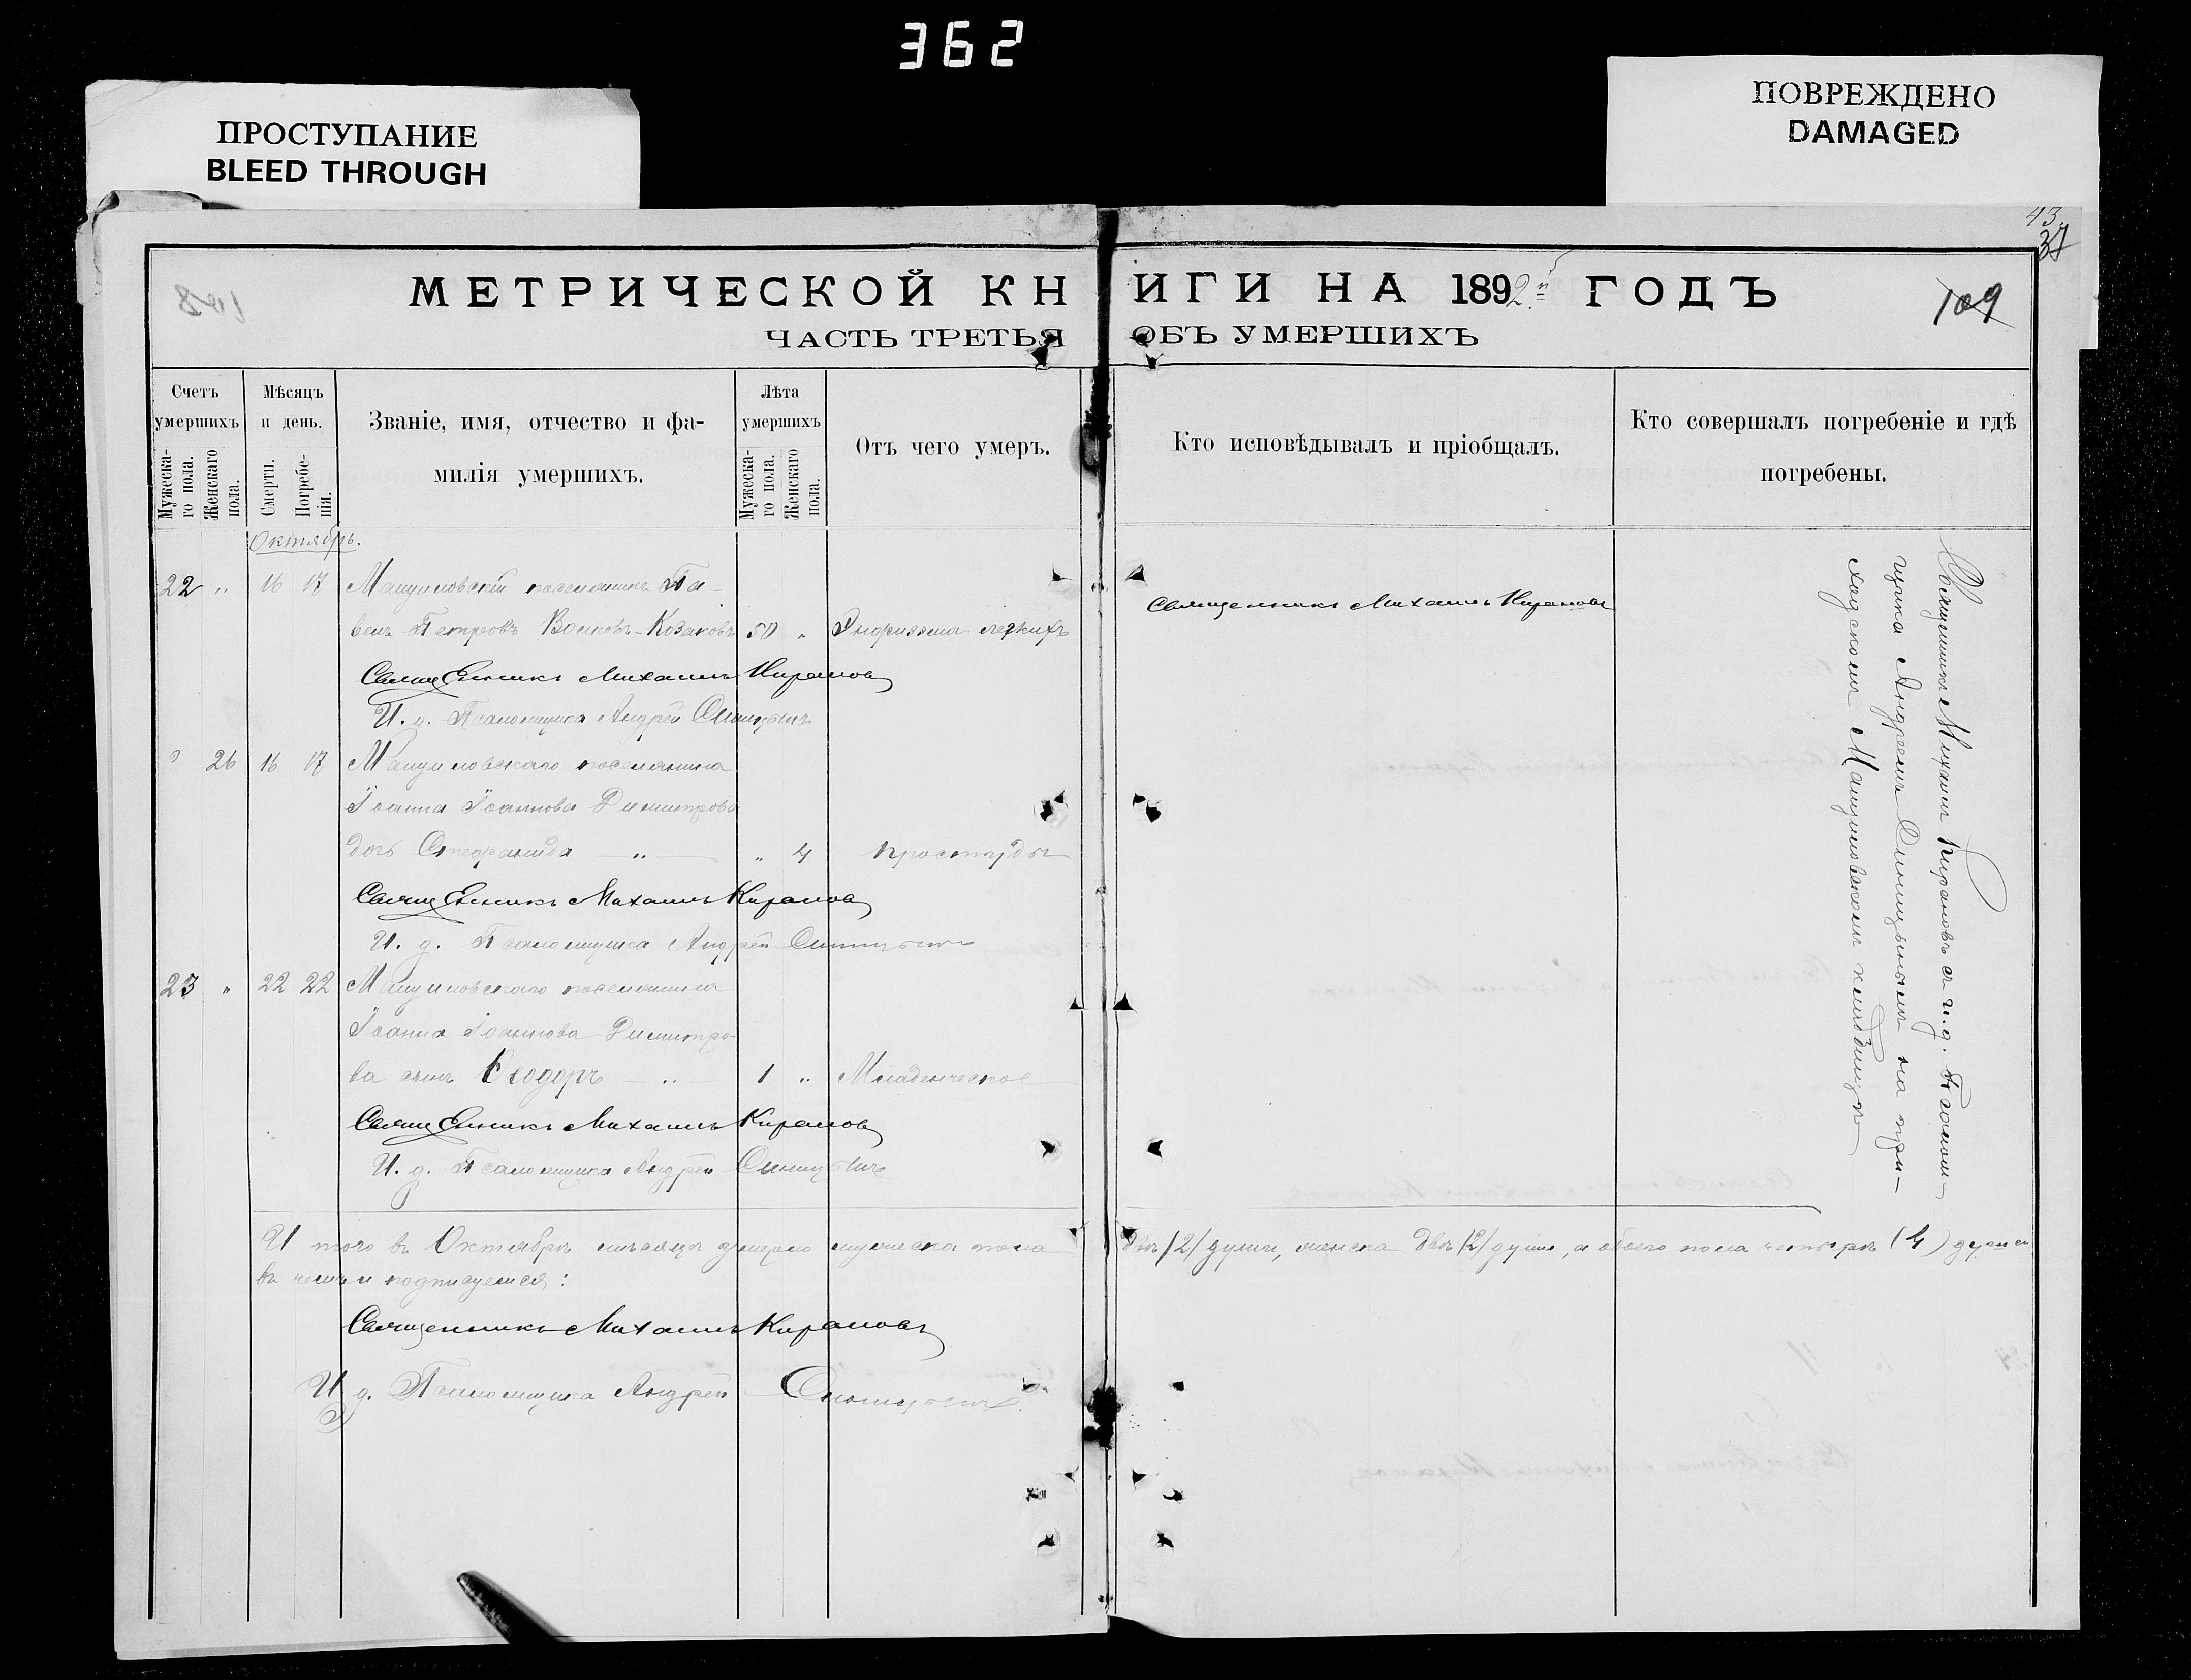 362
ПРОСТУПАНИЕ
BLEED THROUGH
ПОВРЕЖДЕНО
DAMAGED
43
37
МЕТРИЧЕСКОЙ КНИГИ НА 1892й ГОДЪ
109
ЧАСТЬ ТРЕТЬЯ ОБЪ УМЕРШИХЪ
Счетъ умершихъ
Мужеска-го пола.
Женскаго пола.
Мѣсяцъ и день.
Смерти.
Погребе-нія.
Званіе, имя, отчество и фа-
милія умершихъ.
Лѣта умершихъ
Мужеска-го пола.
Женскаго пола.
Отъ чего умеръ.
Кто исповѣдывалъ и пріобщалъ.
Кто совершалъ погребеніе и гдѣ
погребены.
Октябрь.
22 " 16 17 поселянинъ Па-
велъ Петровъ Волковъ-Козаковъ 50 " легкихъ
Священникъ Михаилъ Кирановъ
Священникъ Михаилъ Кирановъ
И. д. Псаломщика Андрей
" 26 16 17 поселянина
Іоанна Іоаннова Димитрова
дочь Стефанида — " — " 4 Простуды
Священникъ Михаилъ Кирановъ
И. д. Псаломщика Андрей
23 " 22 22 поселянина
Іоанна Іоаннова Димитро-
ва сынъ Ѳеодоръ — " — 1 " Младенческое
Священникъ Михаилъ Кирановъ
И. д. Псаломщика Андрей
Священникъ Михаилъ Кирановъ съ и. д. Псалом-
щика Андреемъ на при-
ходскомъ кладбищѣ
Итого въ Октябрѣ мѣсяцѣ умерло мужеска пола двѣ /2/ души, женска двѣ /2/ души, а обоего пола четыре (4) души
въ чемъ и подписуемся:
Священникъ Михаилъ Кирановъ
И. д. Псаломщика Андрей